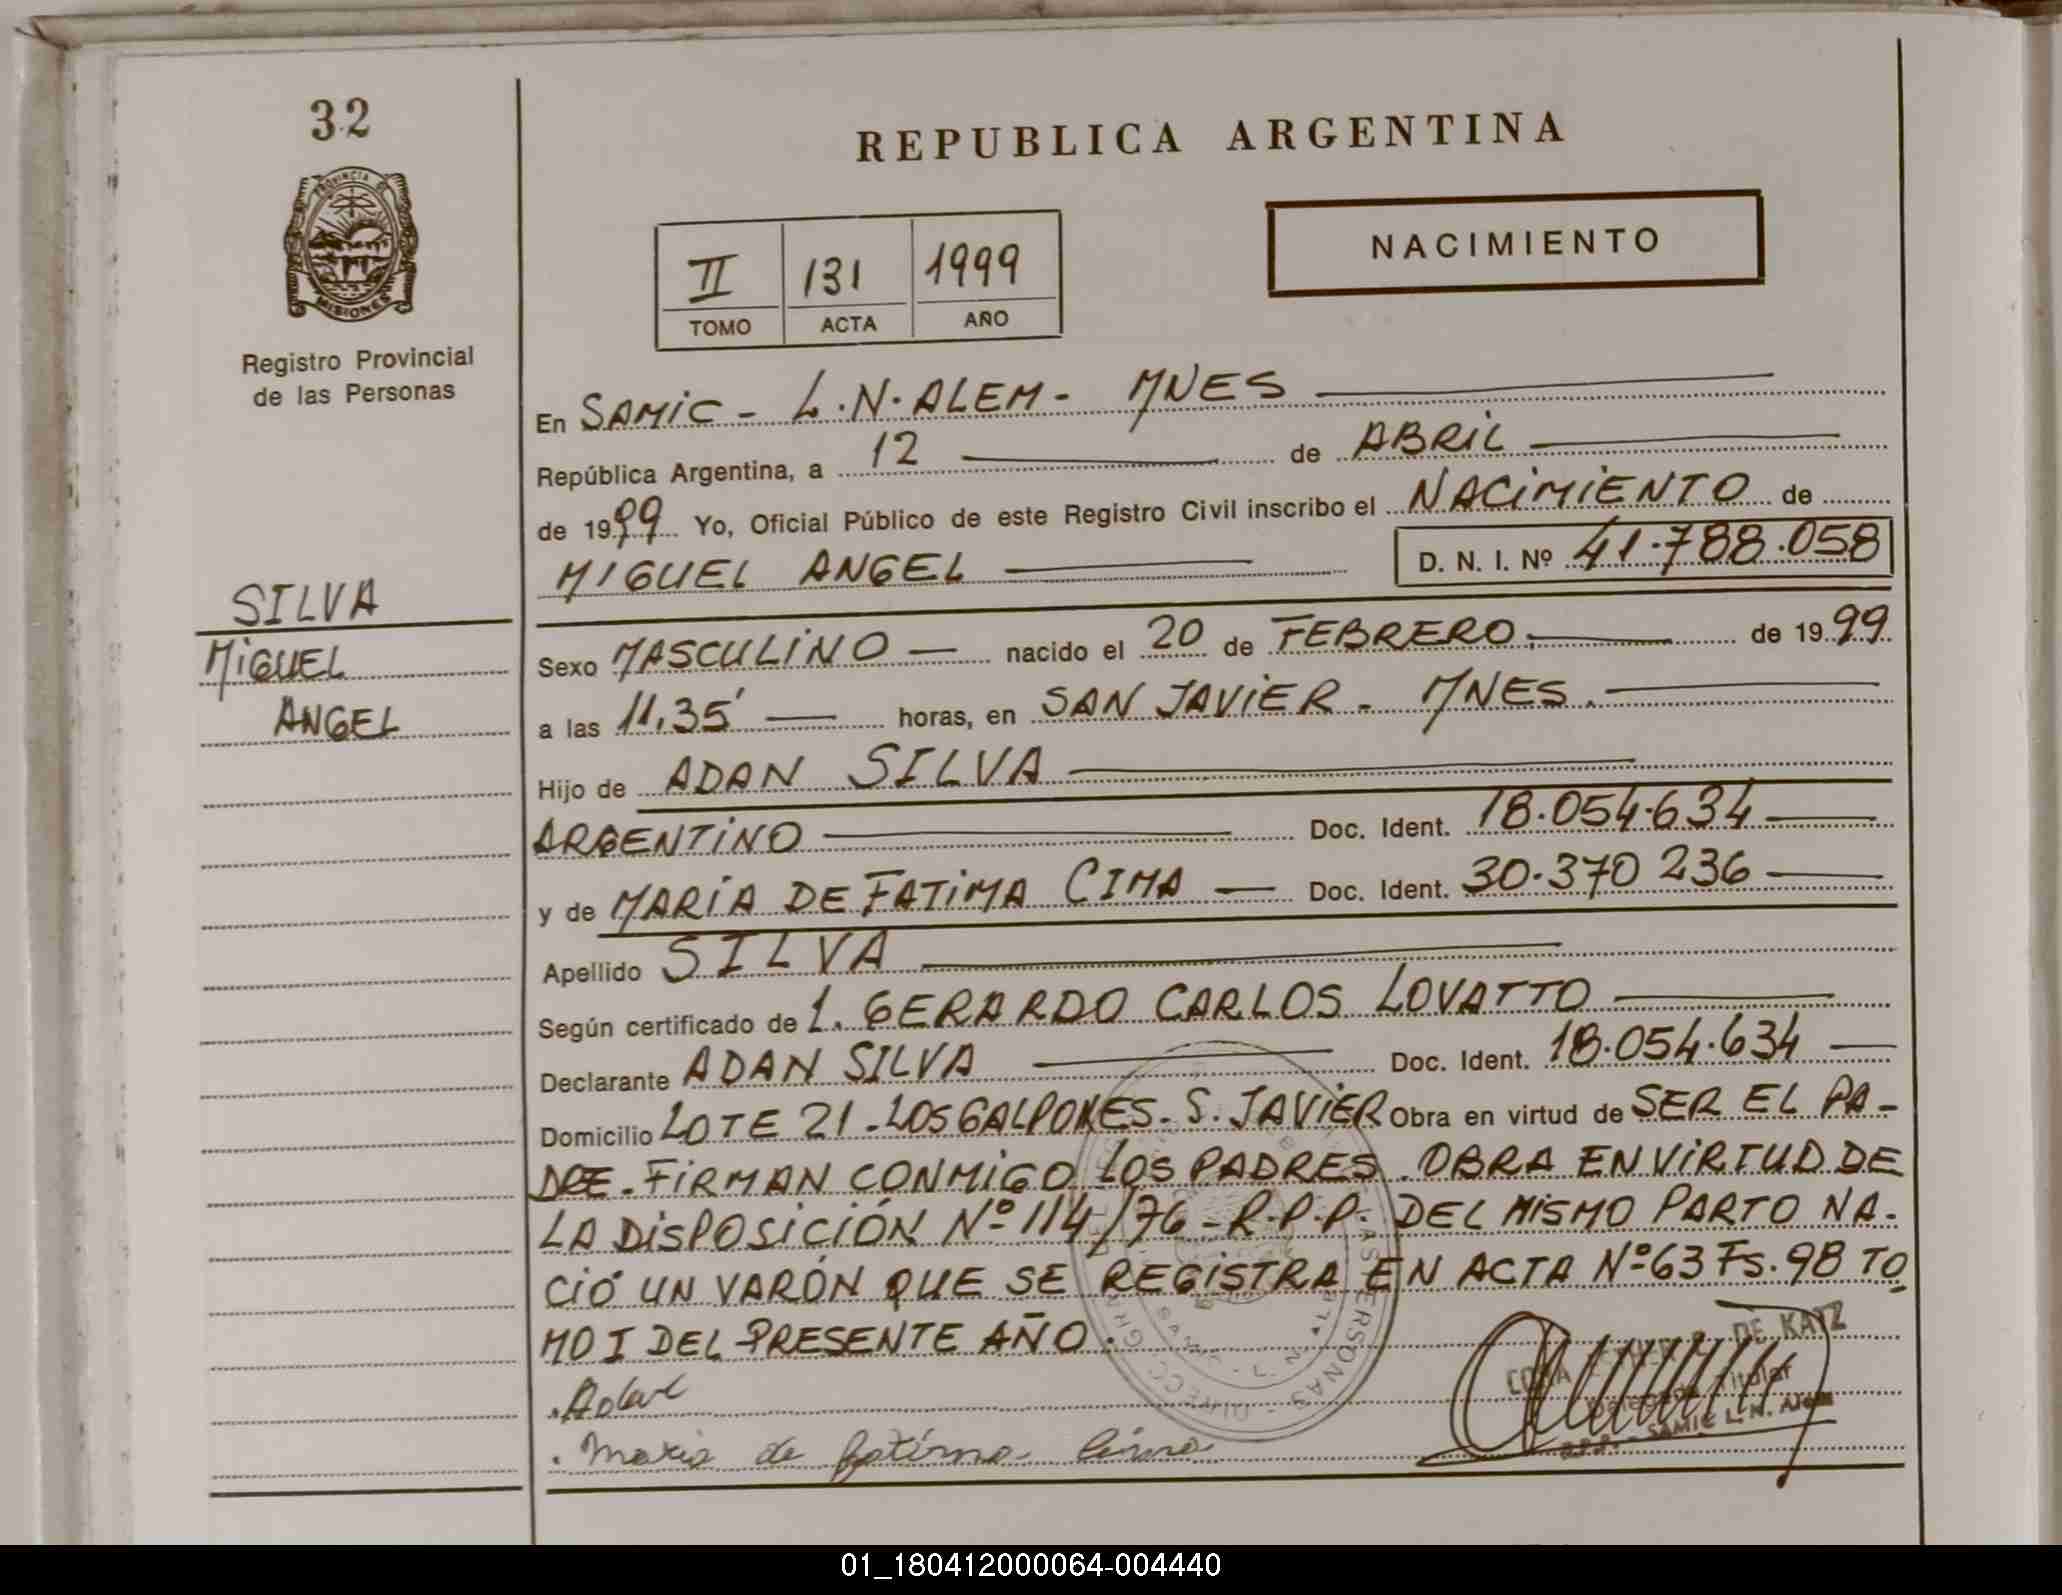 32
PROVINCIA DE
MISIONES
Registro Provincial
de las Personas
SILVA
MIGUEL
ANGEL
REPUBLICA ARGENTINA
NACIMIENTO
II 131 1999
TOMO ACTA AÑO
En SAMIC - L.N. ALEM - MNES
República Argentina, a 12 de ABRIL
de 1999 Yo, Oficial Público de este Registro Civil inscribo el NACIMIENTO de
MIGUEL ANGEL D. N. I. Nº 41.788.058
Sexo MASCULINO nacido el 20 de FEBRERO de 1999
a las 11,35' horas, en SAN JAVIER - MNES.
Hijo de ADAN SILVA
ARGENTINO Doc. Ident. 18.054.634
y de MARIA DE FATIMA CIMA Doc. Ident. 30.370 236
Apellido SILVA
Según certificado de 1. GERARDO CARLOS LOVATTO
Declarante ADAN SILVA Doc. Ident. 18.054.634
Domicilio LOTE 21 - LOS GALPONES - S. JAVIER Obra en virtud de SER EL PA-
DRE. FIRMAN CONMIGO LOS PADRES. OBRA EN VIRTUD DE
LA DISPOSICIÓN Nº 114/76 - R.P.P. DEL MISMO PARTO NA-
CIÓ UN VARÓN QUE SE REGISTRA EN ACTA Nº 63 FS. 98 TO
MO I DEL PRESENTE AÑO.
DE KATZ
Delegada Titular
R.P.P. - SAMIC L. N. Alem
. Maria de fatima Cima
01_180412000064-004440